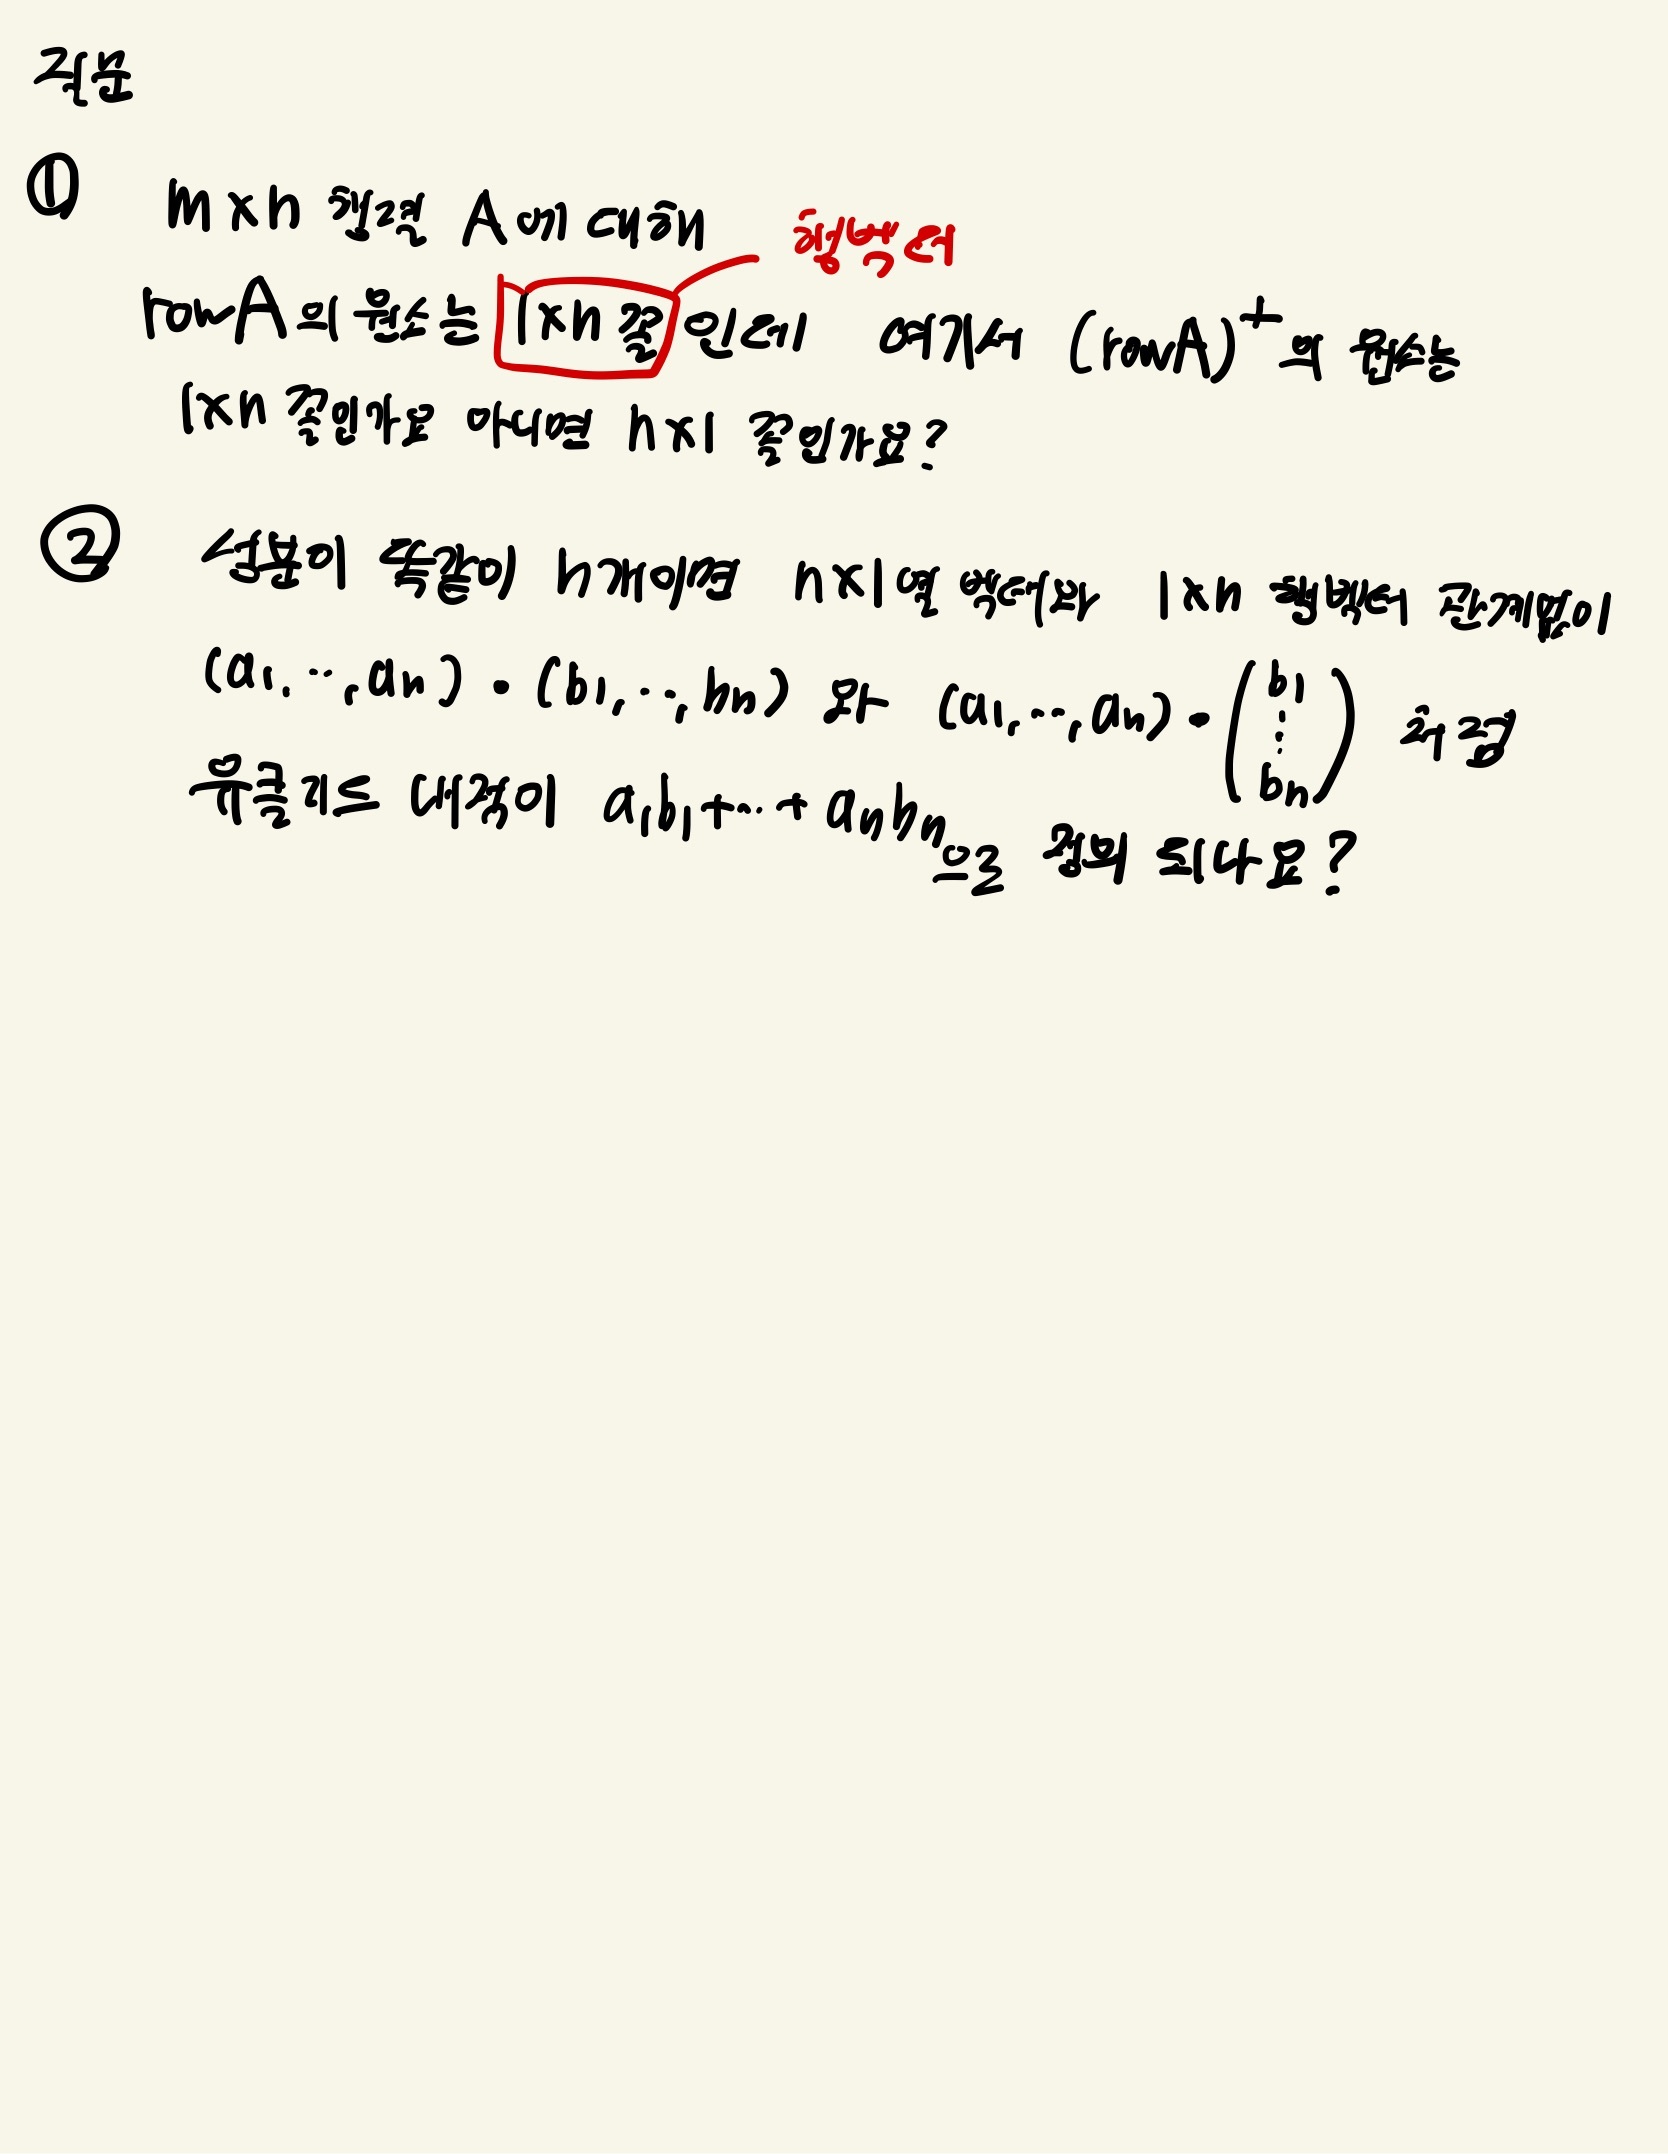 질문
① m×n 행렬 A에 대해
행벡터
rowA의 원소는 1×n 꼴 인데 여기서 (rowA)⊥의 원소는
1×n 꼴인가요 아니면 n×1 꼴인가요?
② 성분이 똑같이 n개이면 n×1열 벡터와 1×n 행벡터 관계없이
(a1, ‥, an) • (b1, ‥, bn) 와 (a1, ‥, an) • (b1 ⋮ bn) 처럼
유클리드 내적이 a1b1+‥+ anbn으로 정의 되나요?